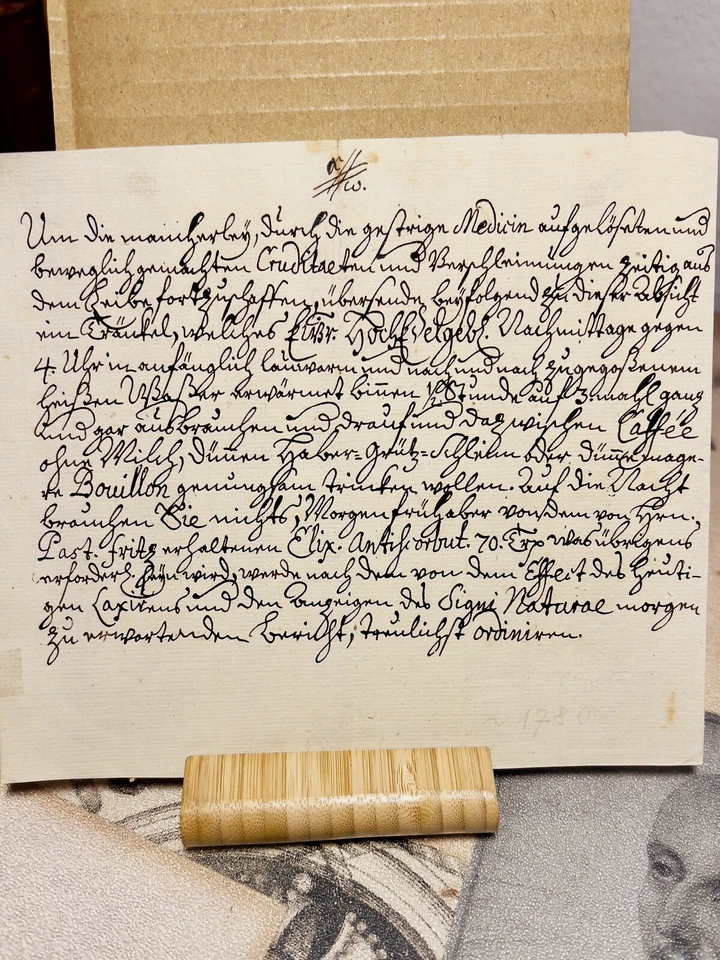 Um die mancherley, durch die gestrige Medicin aufgelöseten und
beweglich gemachten Cruditaeten und Verschleimungen zeitig aus
dem Leibe fortzuschaffen, übersende beyfolgend zu dieser Absicht
ein Tränkel, welches Nachmittage gegen
4. Uhr in anfänglich lauwarm und nach und nach zugegoßenem
heißen Waßer erwärmet binnen 1/2 Stunde auf 3. mahl ganz
und gar ausbrauchen und drauf und dazwischen Caffée
ohne Milch, dünnen Haber-Grütz-Schleim oder dünne mage-
re Bouillon genungsam trinken wollen. Auf die Nacht
brauchen Sie nichts, Morgen früh aber von dem von Hrn.
Past. Fritz erhaltenen Elix. Antiscorbut. 70. Trpf was übrigens
erforderl. seyn wird, werde nach dem von dem Effect des heuti-
gen Laxirens und den Anzeigen des Signi Naturae morgen
zu erwartenden Bericht, treulichst ordiniren.
~ 1780